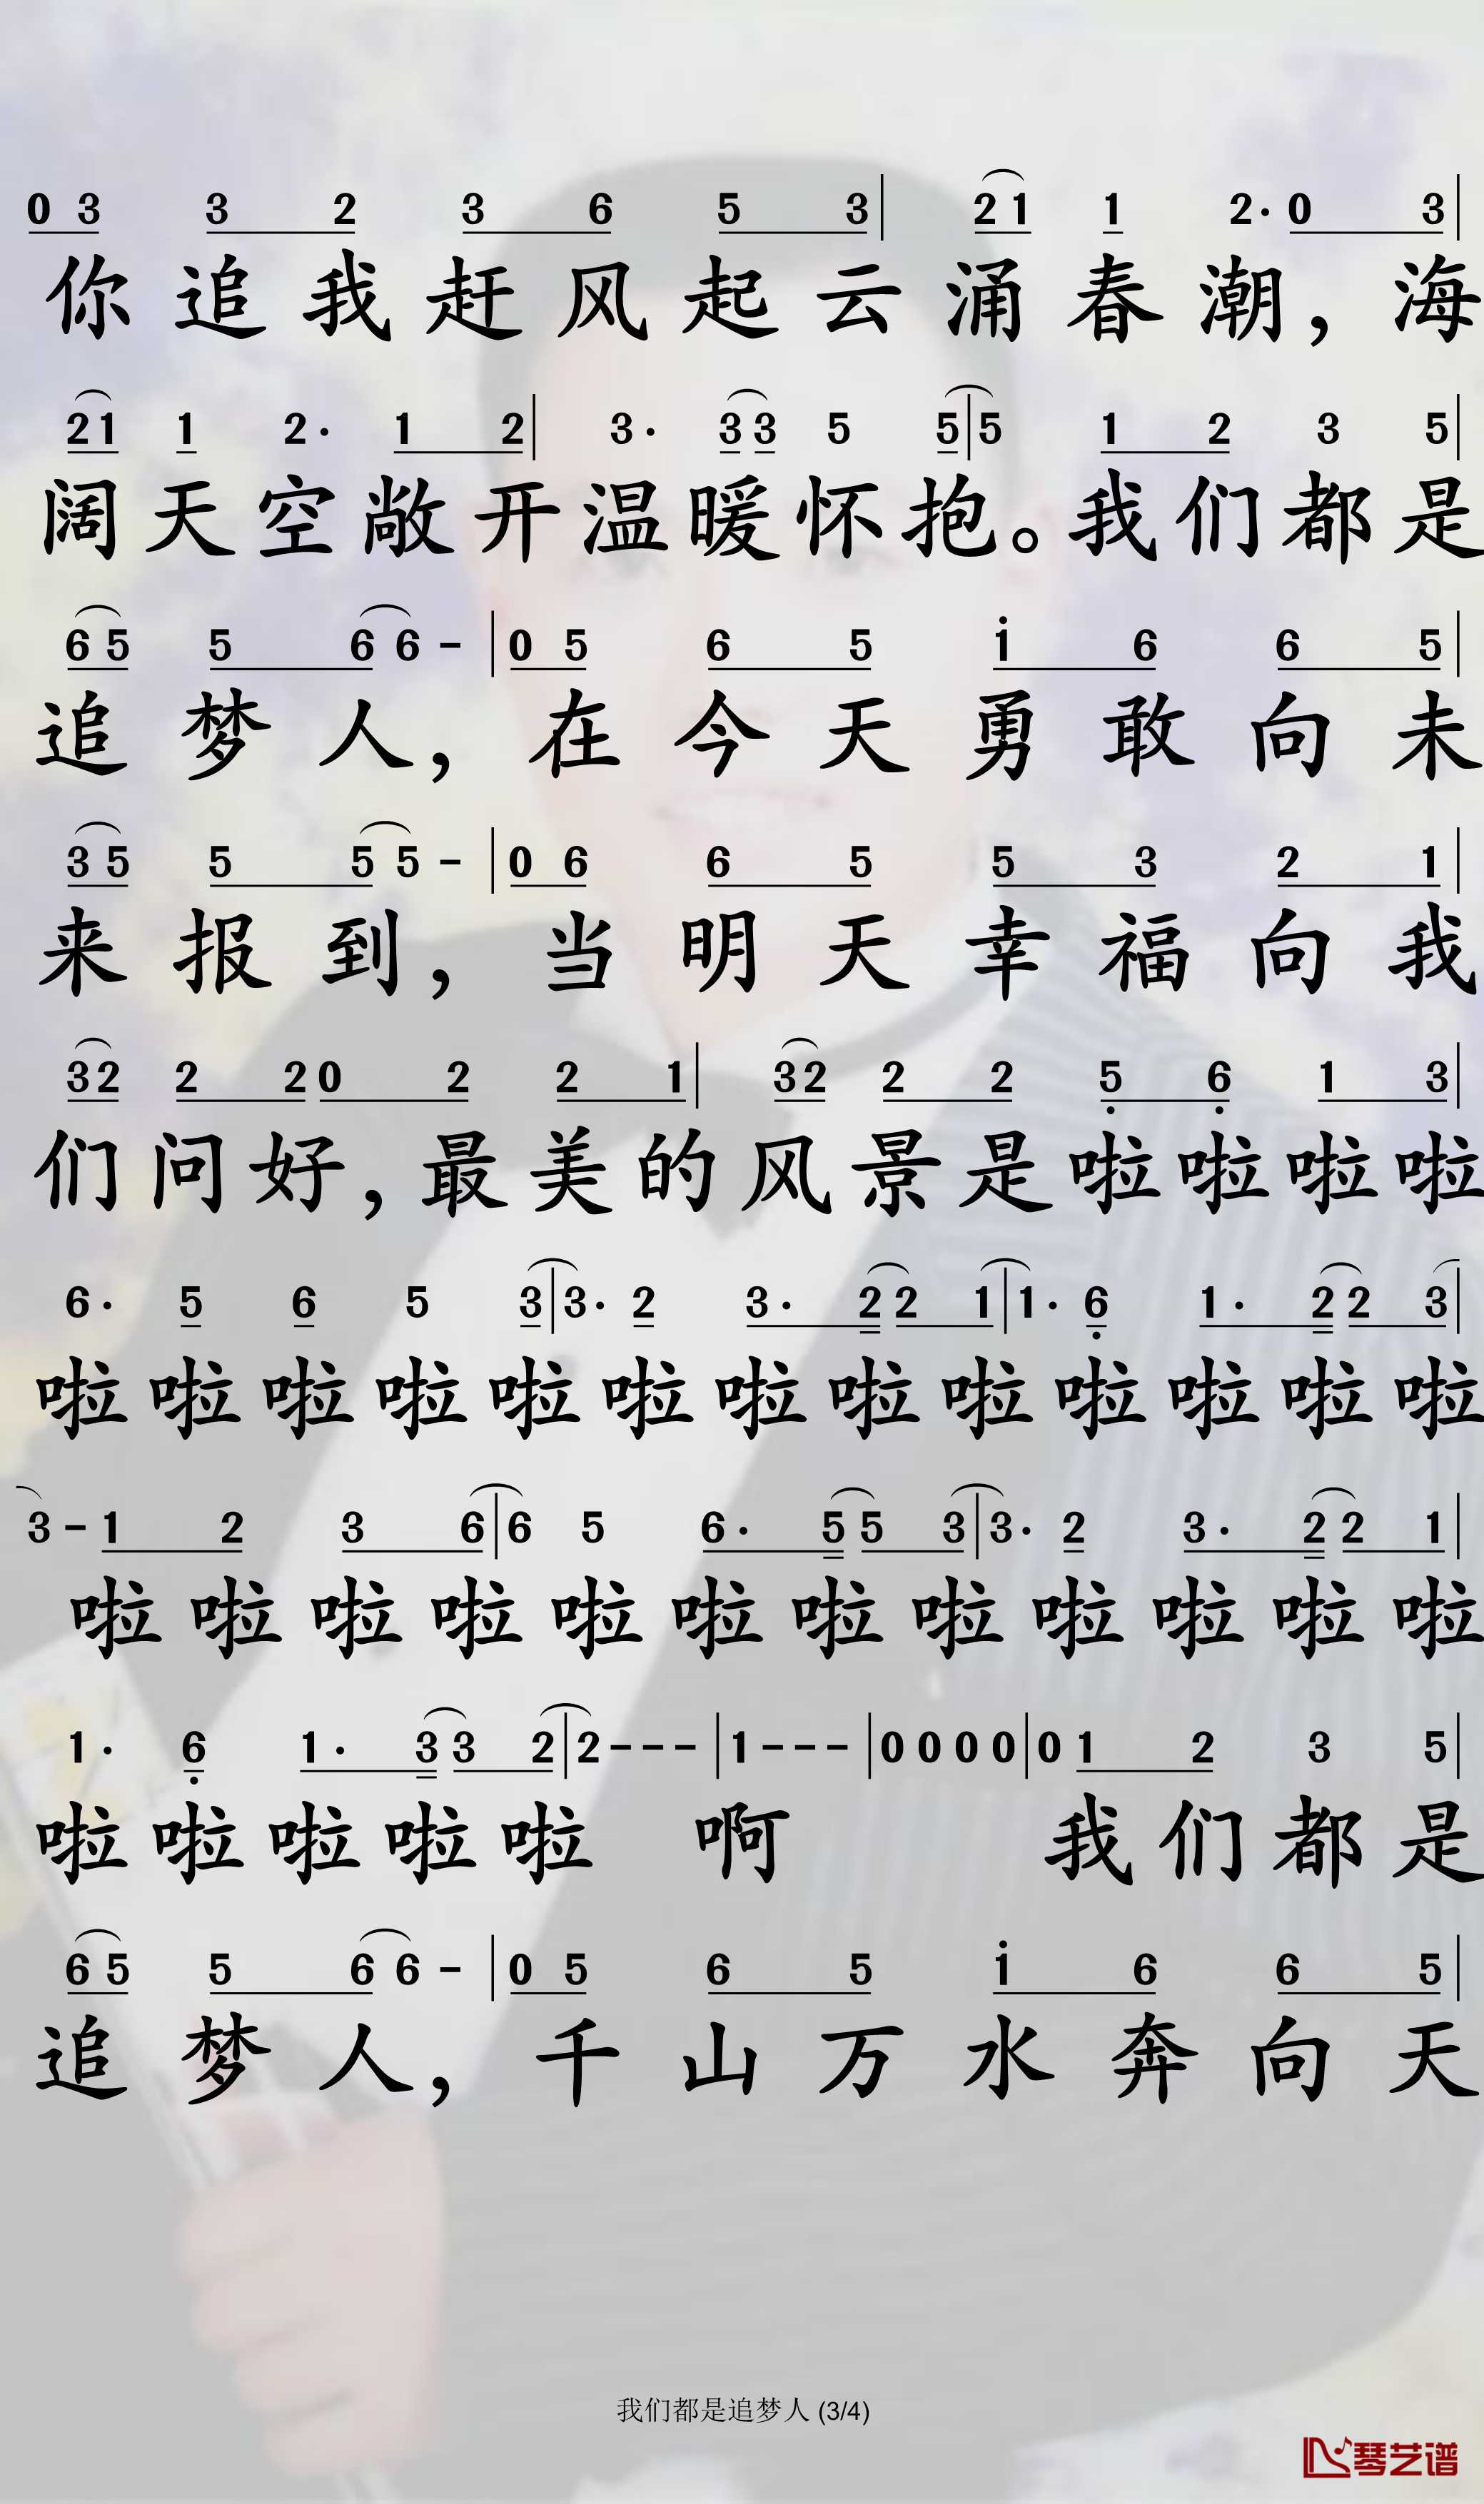 0 3 3 2 3 6 5 3 | 2 1 1 2· 0 3 |
你追我赶风起云涌春潮，海
2 1 1 2· 1 2 | 3· 3 3 5 5 | 5 1 2 3 5 |
阔天空敞开温暖怀抱。我们都是
6 5 5 6 6 - | 0 5 6 5 i 6 6 5 |
追梦人，在今天勇敢向未
3 5 5 5 5 - | 0 6 6 5 5 3 2 1 |
来报到，当明天幸福向我
3 2 2 2 0 2 2 1 | 3 2 2 2 5̣ 6̣ 1 3 |
们问好，最美的风景是啦啦啦啦
6· 5 6 5 3 | 3· 2 3· 2 2 1 | 1· 6̣ 1· 2 2 3 |
啦啦啦啦啦啦啦啦啦啦啦啦啦
3 - 1 2 3 6 | 6 5 6· 5 5 3 | 3· 2 3· 2 2 1 |
啦啦啦啦啦啦啦啦啦啦啦啦
1· 6̣ 1· 3 3 2 | 2 - - - | 1 - - - | 0 0 0 0 | 0 1 2 3 5 |
啦啦啦啦啦 啊 我们都是
6 5 5 6 6 - | 0 5 6 5 i 6 6 5 |
追梦人，千山万水奔向天
我们都是追梦人 (3/4)
琴艺谱